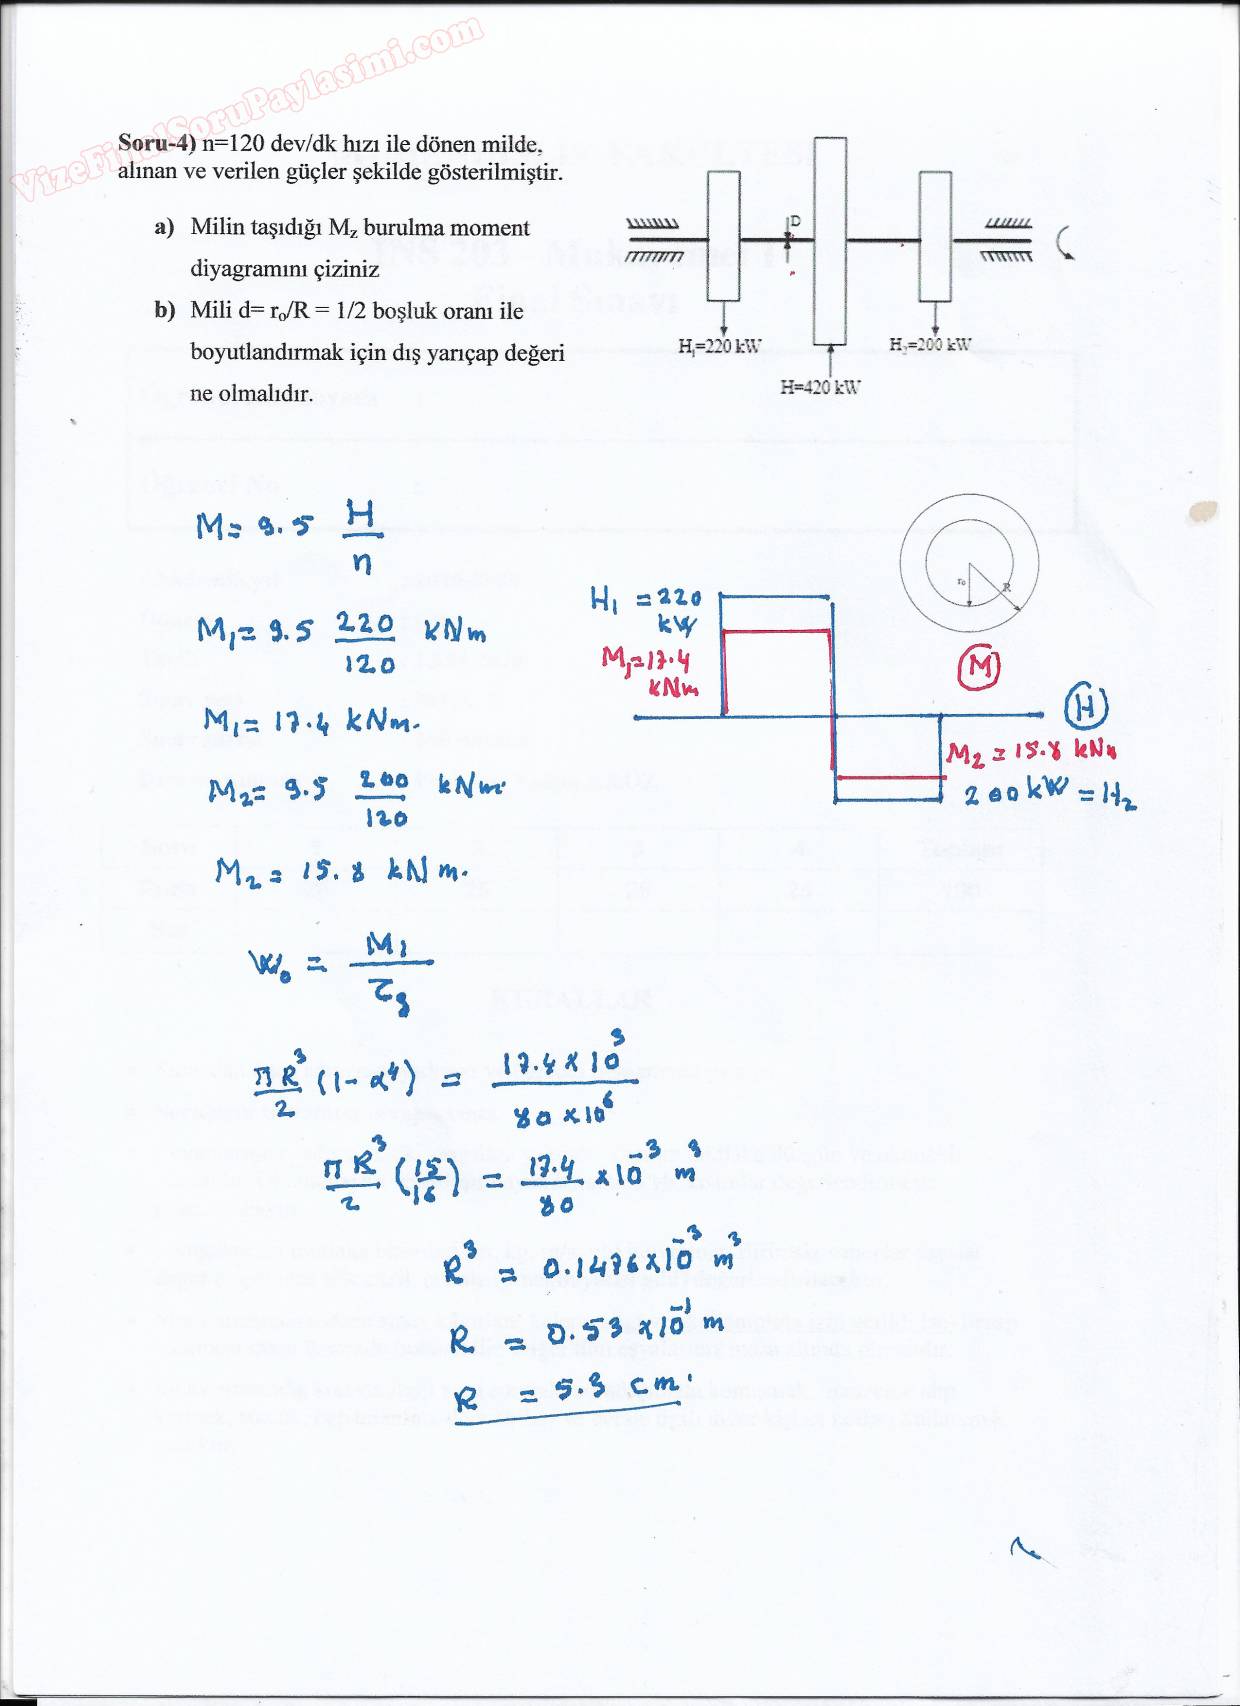 VizeFinalSoruPaylasimi.com
Soru-4) n=120 dev/dk hızı ile dönen milde,
alınan ve verilen güçler şekilde gösterilmiştir.
a) Milin taşıdığı Mz burulma moment
diyagramını çiziniz
b) Mili d= ro/R = 1/2 boşluk oranı ile
boyutlandırmak için dış yarıçap değeri
ne olmalıdır.
D
H₁=220 kW
H₂=200 kW
H=420 kW
M = 9.5 H/n
M₁ = 9.5 220/120 kNm
M₁ = 17.4 kNm.
M₂ = 9.5 200/120 kNm
M₂ = 15.8 kNm.
r₀
R
H₁ = 220
kW
M₁=17.4
kNm
M
H
M₂ = 15.8 kNm
200 kW = H₂
W₀ = M₁/τ
πR³/2 (1-α⁴) = 17.4×10³/80×10⁶
πR³/2 (15/16) = 17.4/80 ×10⁻³ m³
R³ = 0.1476×10⁻³ m³
R = 0.53 ×10⁻¹ m
R = 5.3 cm.